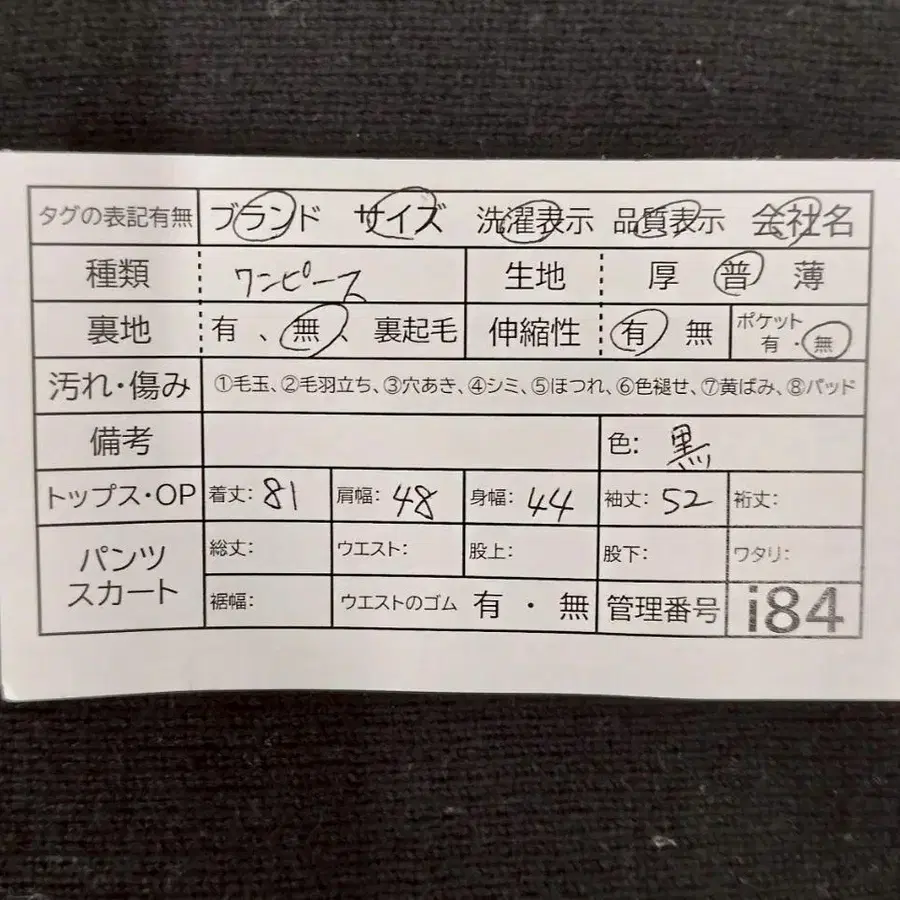 タグの表記有無 ブランド サイズ 洗濯表示 品質表示 会社名
種類 ワンピース 生地 厚 普 薄
裏地 有 、 無 、 裏起毛 伸縮性 有 無 ポケット 有 ・ 無
汚れ・傷み ①毛玉、②毛羽立ち、③穴あき、④シミ、⑤ほつれ、⑥色褪せ、⑦黄ばみ、⑧パッド
備考 色: 黒
トップス・OP 着丈: 81 肩幅: 48 身幅: 44 袖丈: 52 裄丈:
パンツ スカート 総丈: ウエスト: 股上: 股下: ワタリ:
裾幅: ウエストのゴム 有 ・ 無 管理番号 i84